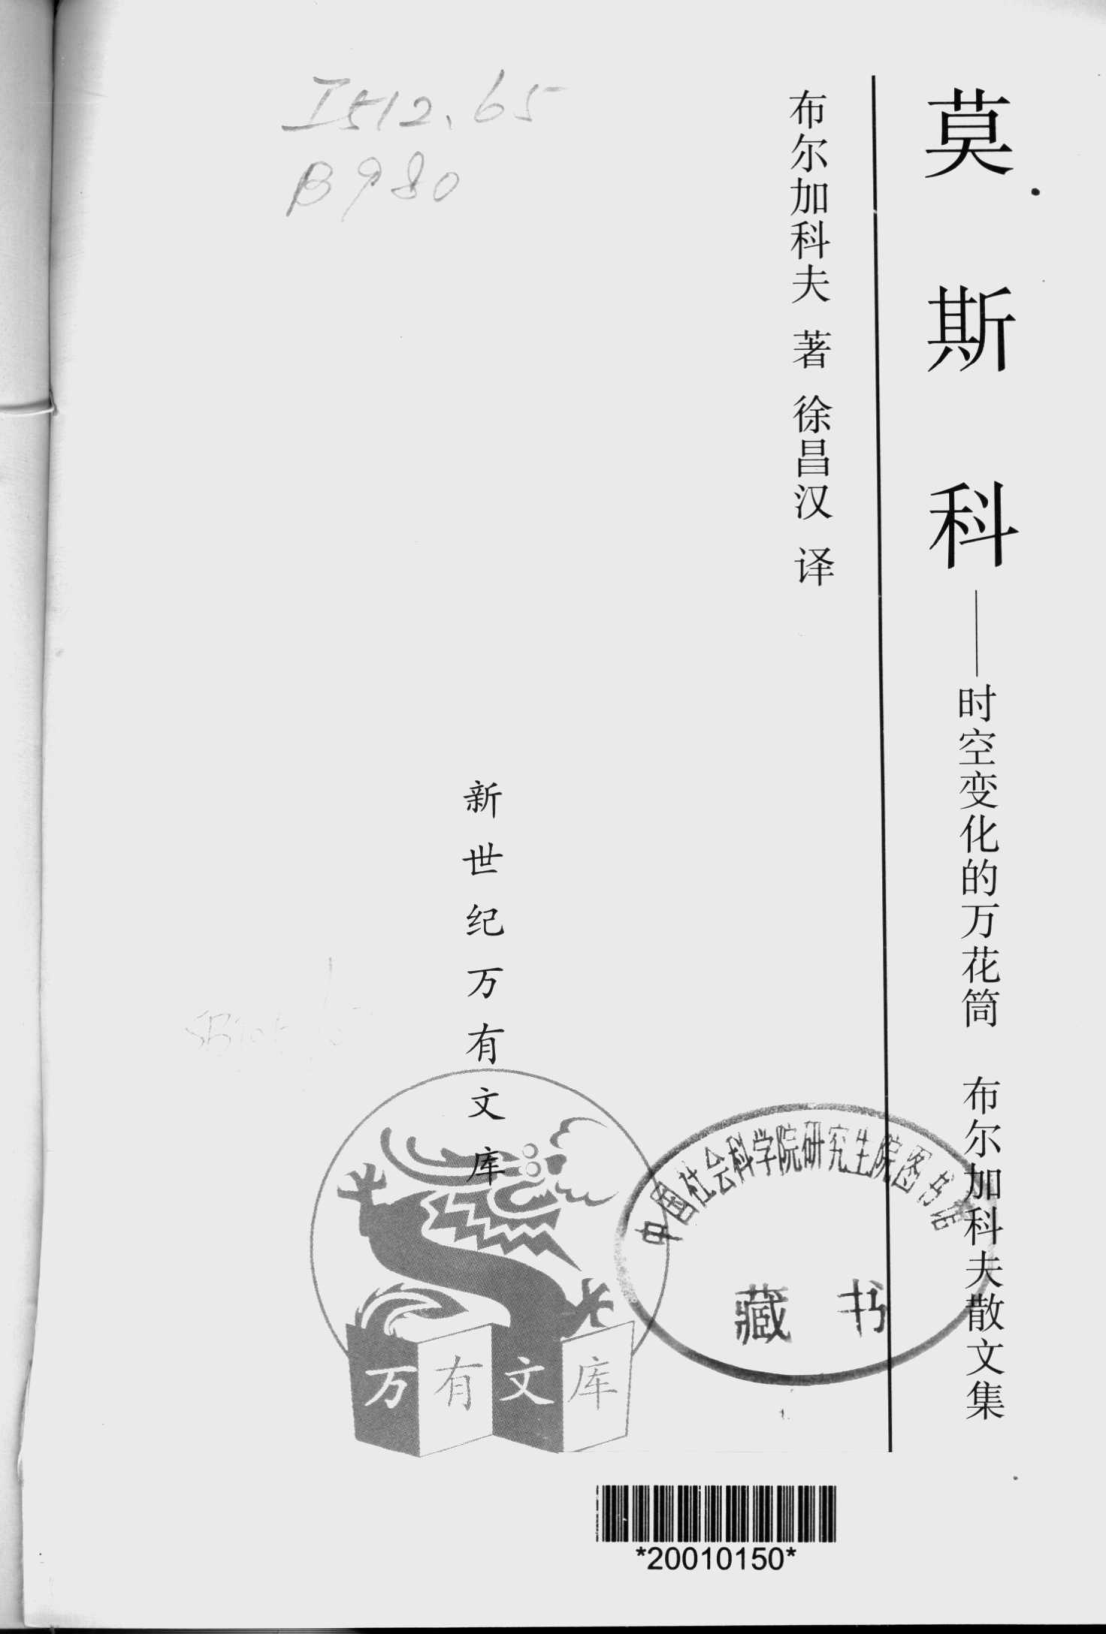 I512.65
B980
莫斯科——时空变化的万花筒 布尔加科夫散文集
布尔加科夫 著 徐昌汉 译
新世纪万有文库
万有文库
中国社会科学院研究生院图书馆
藏书
*20010150*